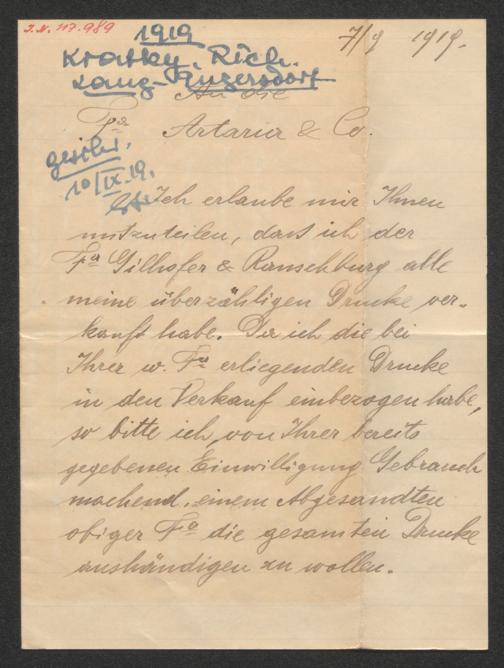 J.N. 117.989
1919
7/9 1919.
Kratky Rich.
Lang-Enzersdorf
An die
Fa Artaria & Co.
10/IX.19.
Ich erlaube mir Ihnen
mitzuteilen, dass ich der
Fa Gilhofer & Ranschburg alle
meine überzähligen Drucke ver-
kauft habe. Da ich die bei
Ihrer w. Fa erliegenden Drucke
in den Verkauf einbezogen habe,
so bitte ich, von Ihrer bereits
gegebenen Einwilligung Gebrauch
machend, einem Abgesandten
obiger Fa die gesamten Drucke
aushändigen zu wollen.